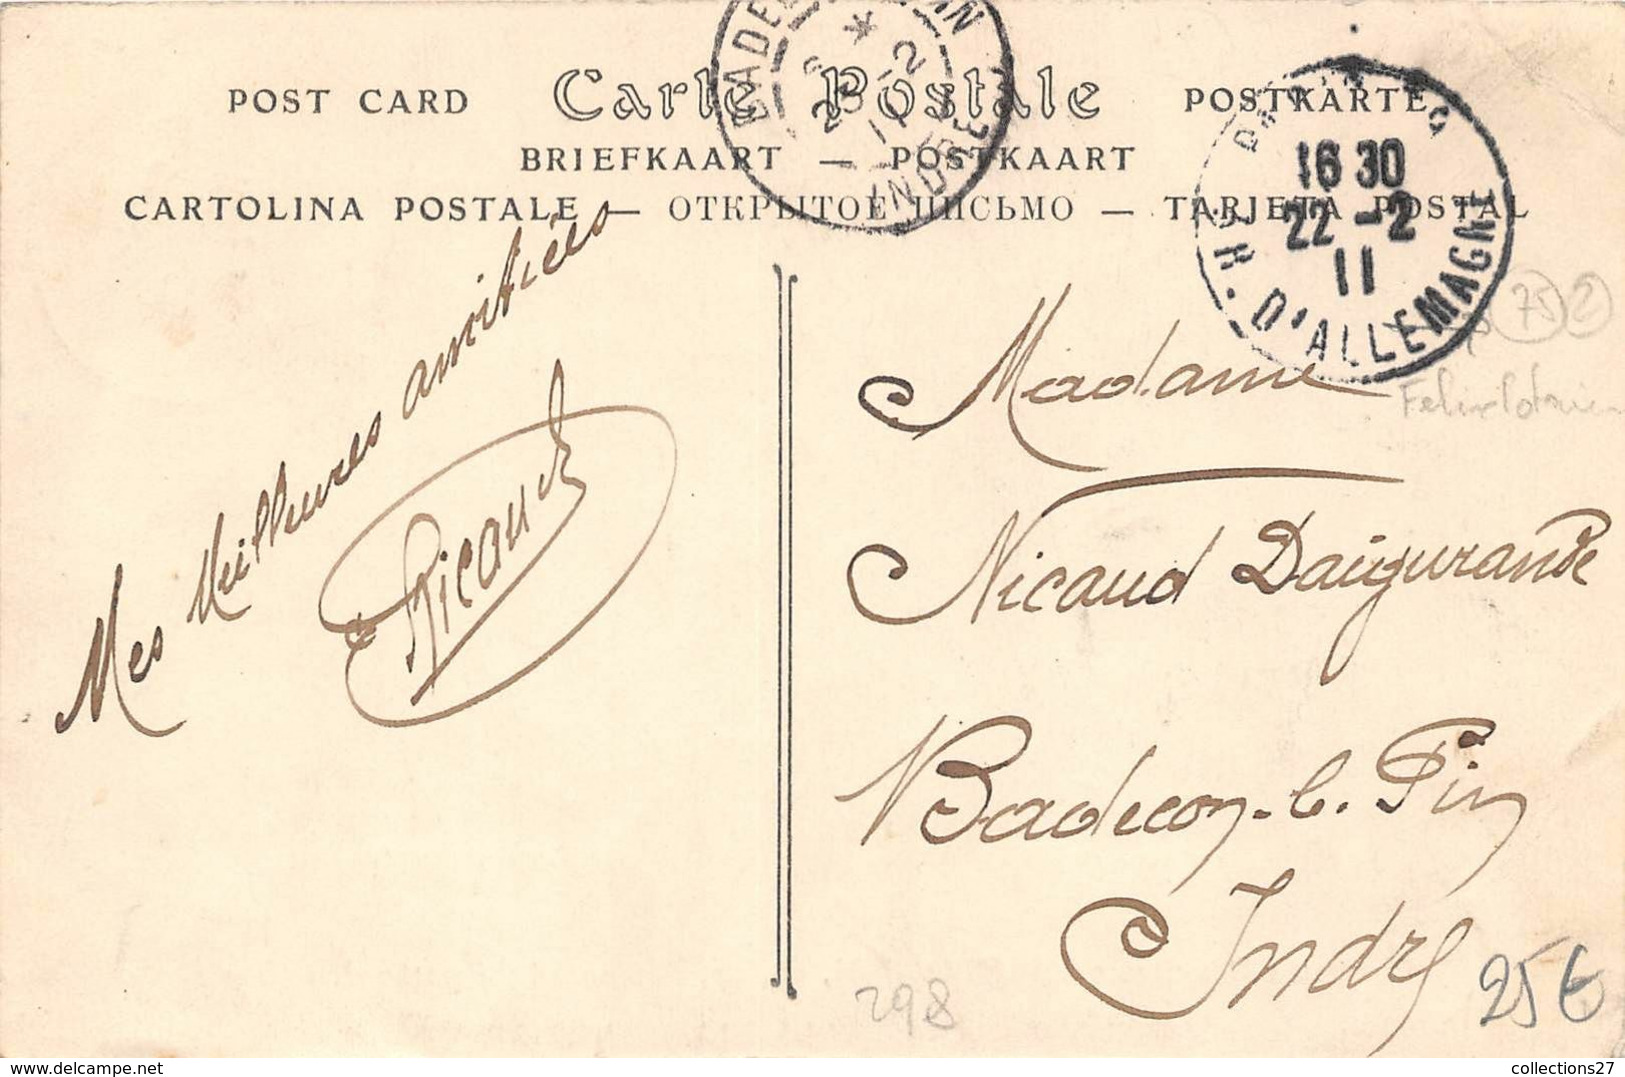 POST CARD Carte Postale POSTKARTE
BRIEFKAART — POSTKAART
CARTOLINA POSTALE — ОТКРЫТОЕ ПИСЬМО — TARJETA POSTAL
INDRE
16 30
22 -2
11
R. D'ALLEMAGNE
75 2
Mes Meilleures amitiées
Nicaud
Madame
Nicaud Daigurande
Badecon-le-Pin
Indre
298
25€
collections27